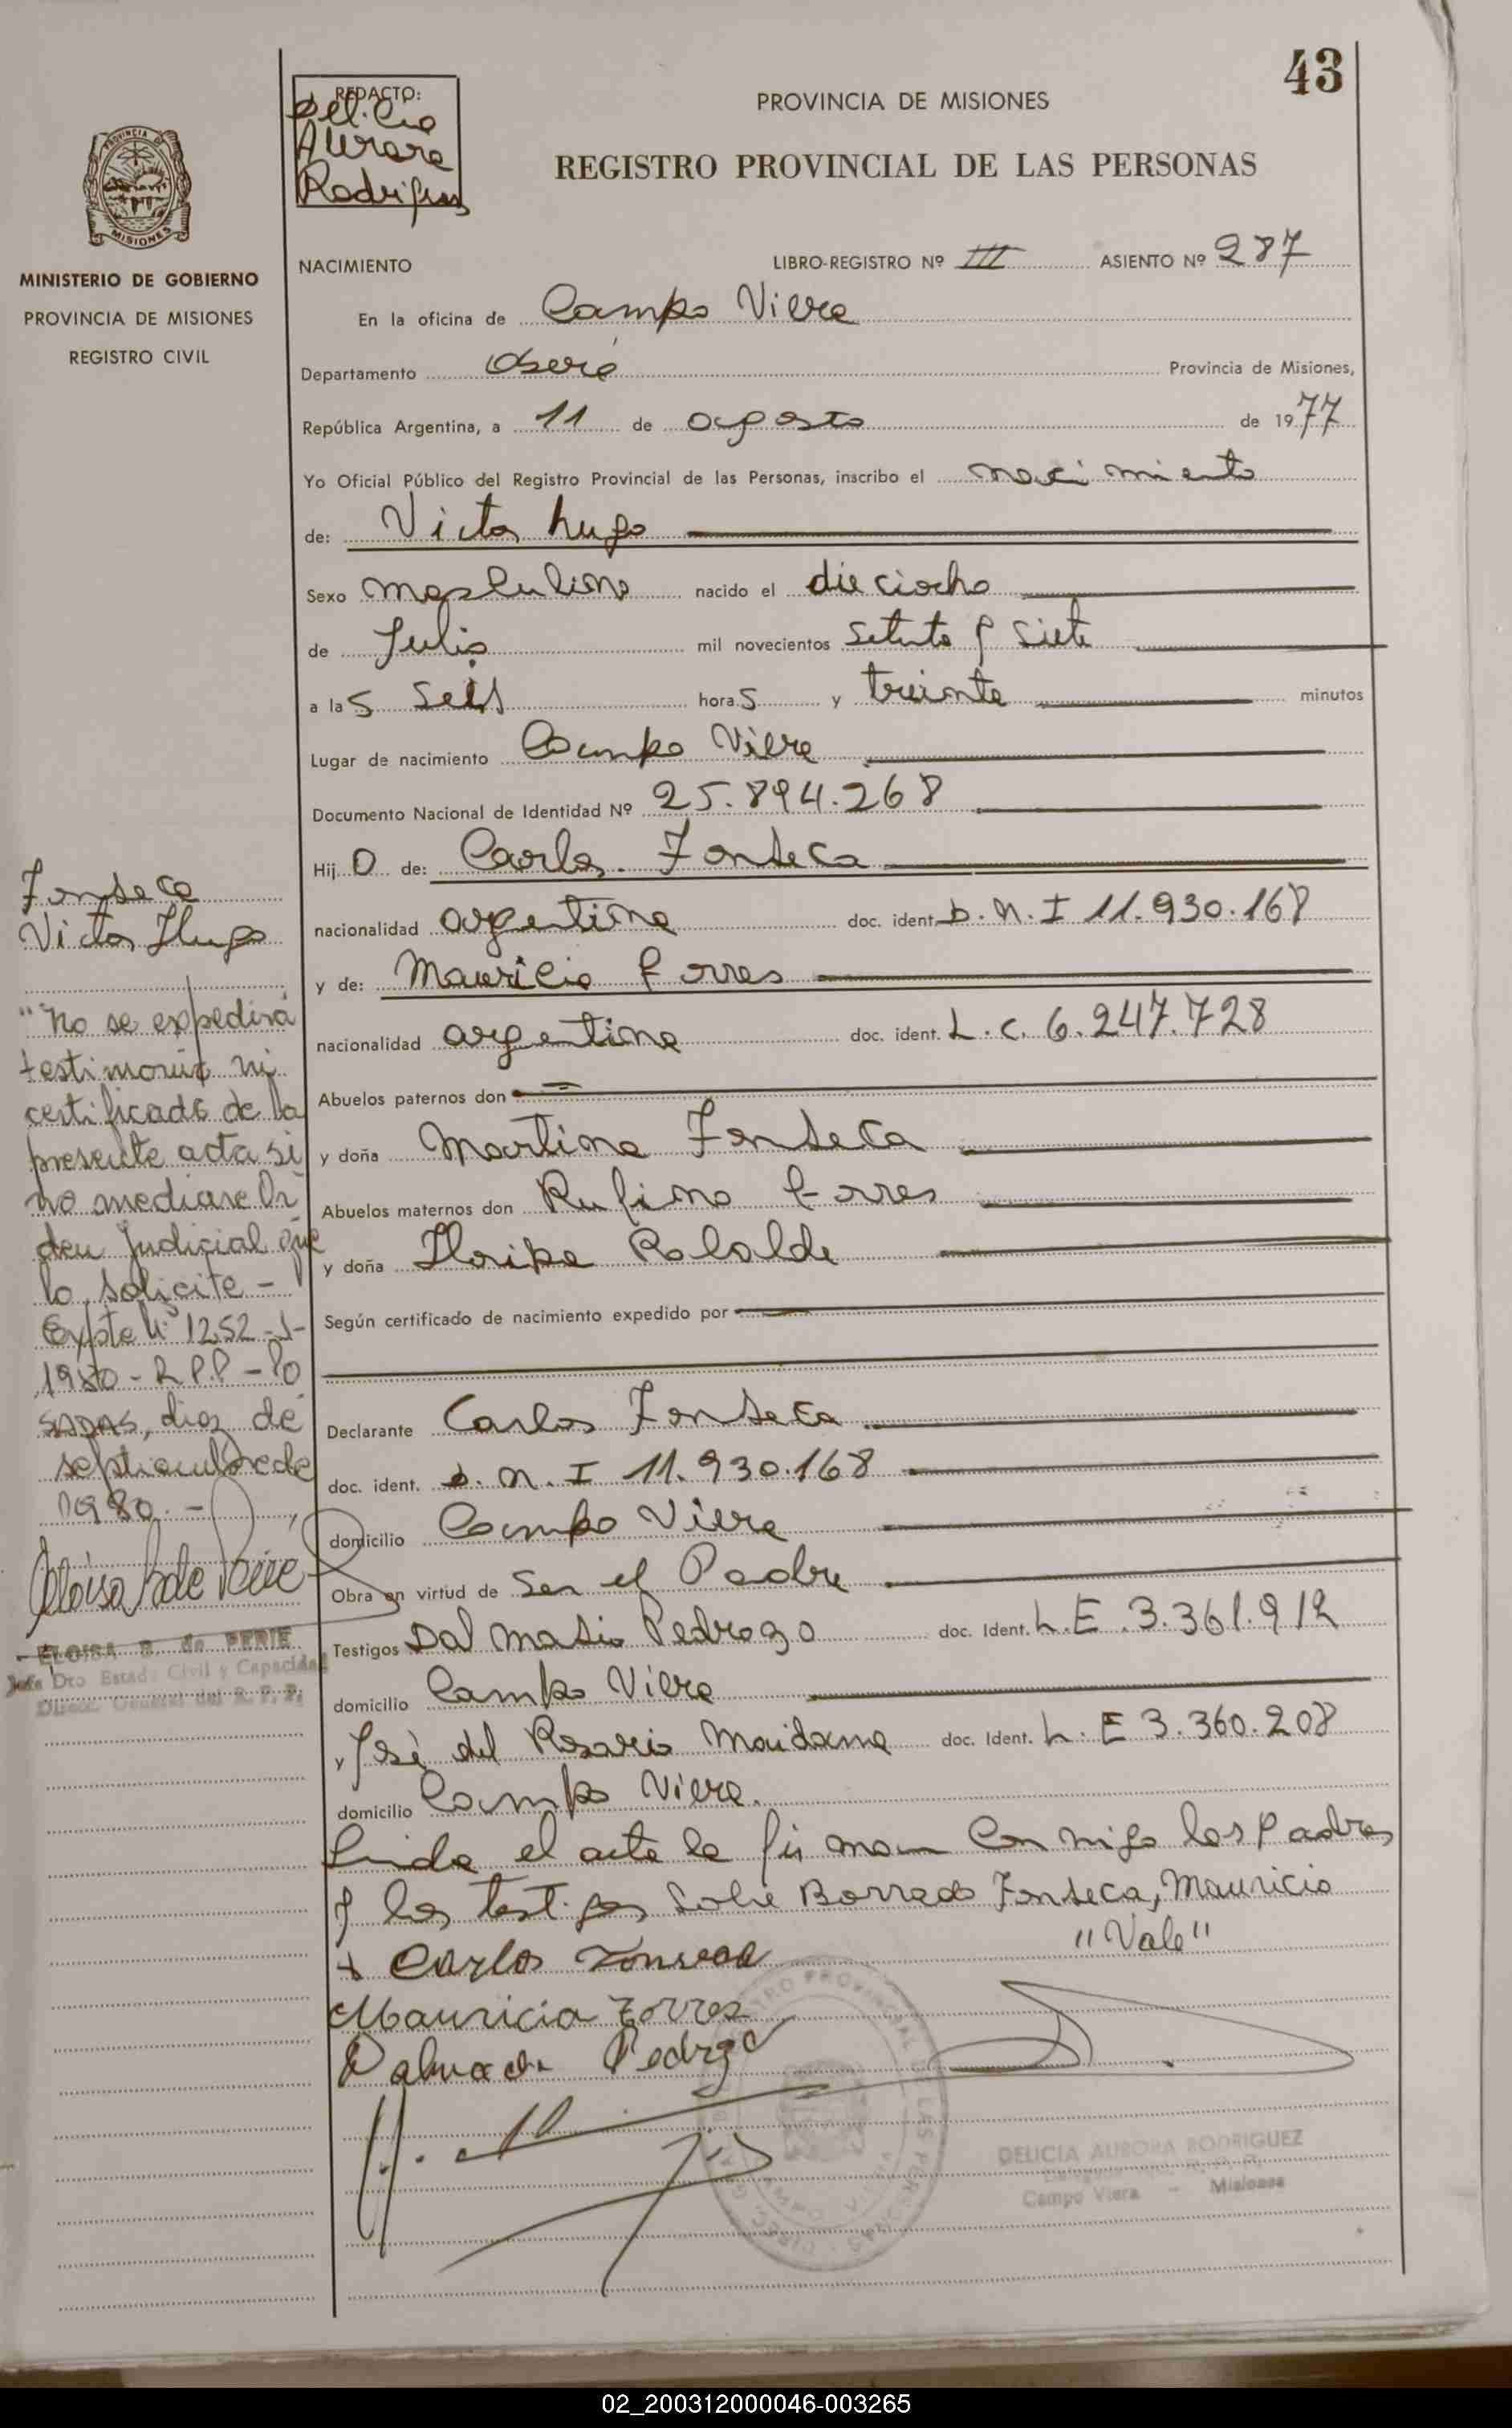 43
REDACTO:
Delicia
Aurora
Rodriguez
PROVINCIA DE MISIONES
REGISTRO PROVINCIAL DE LAS PERSONAS
MISIONES
MINISTERIO DE GOBIERNO
PROVINCIA DE MISIONES
REGISTRO CIVIL
NACIMIENTO LIBRO-REGISTRO Nº III ASIENTO Nº 287
En la oficina de Campo Viera
Departamento Oberá Provincia de Misiones,
República Argentina, a 11 de agosto de 1977
Yo Oficial Público del Registro Provincial de las Personas, inscribo el nacimiento
de: Victor hugo
Sexo masculino nacido el dieciocho
de Julio mil novecientos setenta y siete
a las seis horas y treinta minutos
Lugar de nacimiento Campo Viera
Documento Nacional de Identidad Nº 25.894.268
Hijo de: Carlos Fonseca
nacionalidad argentina doc. ident. D.N.I 11.930.168
y de: Mauricia Torres
nacionalidad argentina doc. ident. L.C. 6.247.728
Abuelos paternos don
y doña Martina Fonseca
Abuelos maternos don Rufino Torres
y doña
Según certificado de nacimiento expedido por
Declarante Carlos Fonseca
doc. ident. D.N.I 11.930.168
domicilio Campo Viera
Obra en virtud de ser el Padre
Testigos Dalmasio Pedrozo doc. Ident. L.E. 3.361.912
domicilio Campo Viera
y José del Rosario Maidana doc. Ident. L.E 3.360.208
domicilio Campo Viera.
Leida el acta la firman conmigo los padres
y los testigos Sobre Borrado Fonseca, Mauricio
"Vale"
Carlos Fonseca
Mauricia Torres
Pedrozo
DELICIA AURORA RODRIGUEZ
Campo Viera - Misiones
Fonseca
Victor Hugo
"No se expedirá
testimonio ni
certificado de la
presente acta si
no mediare Or
den Judicial que
lo solicite -
Expte Nº 1252-J-
1980 - R.P.P - Po
sadas, diez de
septiembre de
1980. -
ELOISA B. de PERIE
Jefe Dto Estado Civil y Capacidad
Direc. General del R. P. P.
02_200312000046-003265